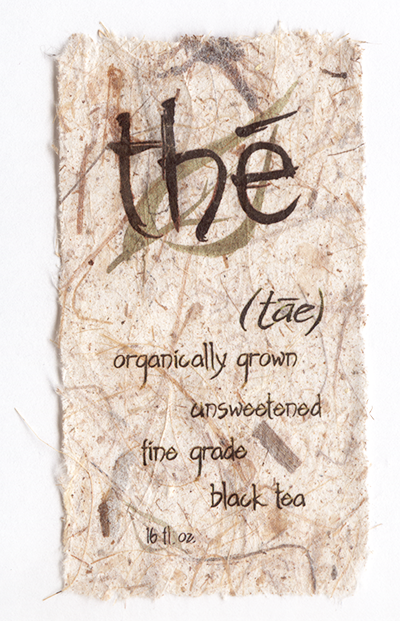 thē
(tāe)
organically grown
unsweetened
fine grade
black tea
16 fl. oz.